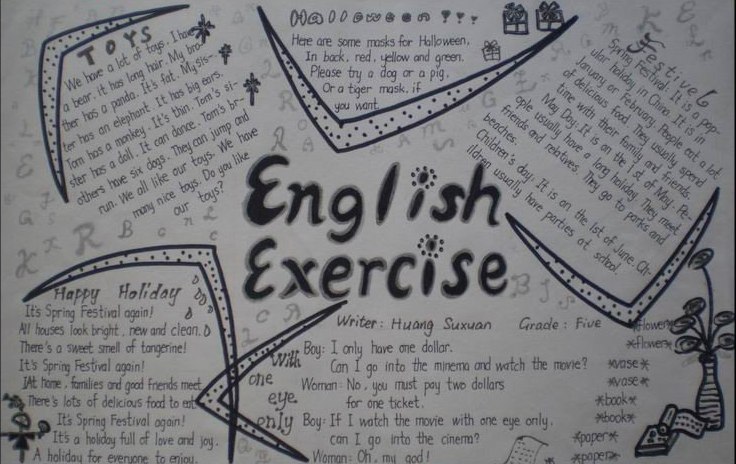 TOYS
We have a lot of toys. I have
a bear. it has long hair. My bro-
ther has a panda. It's fat. My sis-
ter has an elephant. It has big ears.
Tom has a monkey. It's thin. Tom's si-
ster has a doll. It can dance. Tom's br-
others have six dogs. They can jump and
run. We all like our toys. We have
many nice toys. Do you like
our toys?
Halloween???
Here are some masks for Halloween,
In back, red, yellow and green.
Please try a dog or a pig,
Or a tiger mask, if
you want.
Festive
Spring Festival. It is a pop-
ular holiday in China. It is in
January or February. People eat a lot
of delicious food. They usually spend
time with their family and friends.
May Day: It is on the 1st of May. Pe-
ople usually have a long holiday. They meet
friends and relatives. They go to parks and
beaches.
Children's day. It is on the 1st of June. Ch-
ildren usually have parties at school.
English
Exercise
Happy Holiday
It's Spring Festival again!
All houses look bright, new and clean.
There's a sweet smell of tangerine!
It's Spring Festival again!
At home, families and good friends meet.
There's lots of delicious food to eat.
It's Spring Festival again!
It's a holiday full of love and joy.
A holiday for everyone to enjoy.
With
one
eye
only
Writer: Huang Suxuan Grade: Five
Boy: I only have one dollar.
Can I go into the minema and watch the movie?
Woman: No, you must pay two dollars
for one ticket.
Boy: If I watch the movie with one eye only,
can I go into the cinema?
Woman: Oh, my god!
*flower*
*flower*
*vase*
*vase*
*book*
*book*
*paper*
*paper*